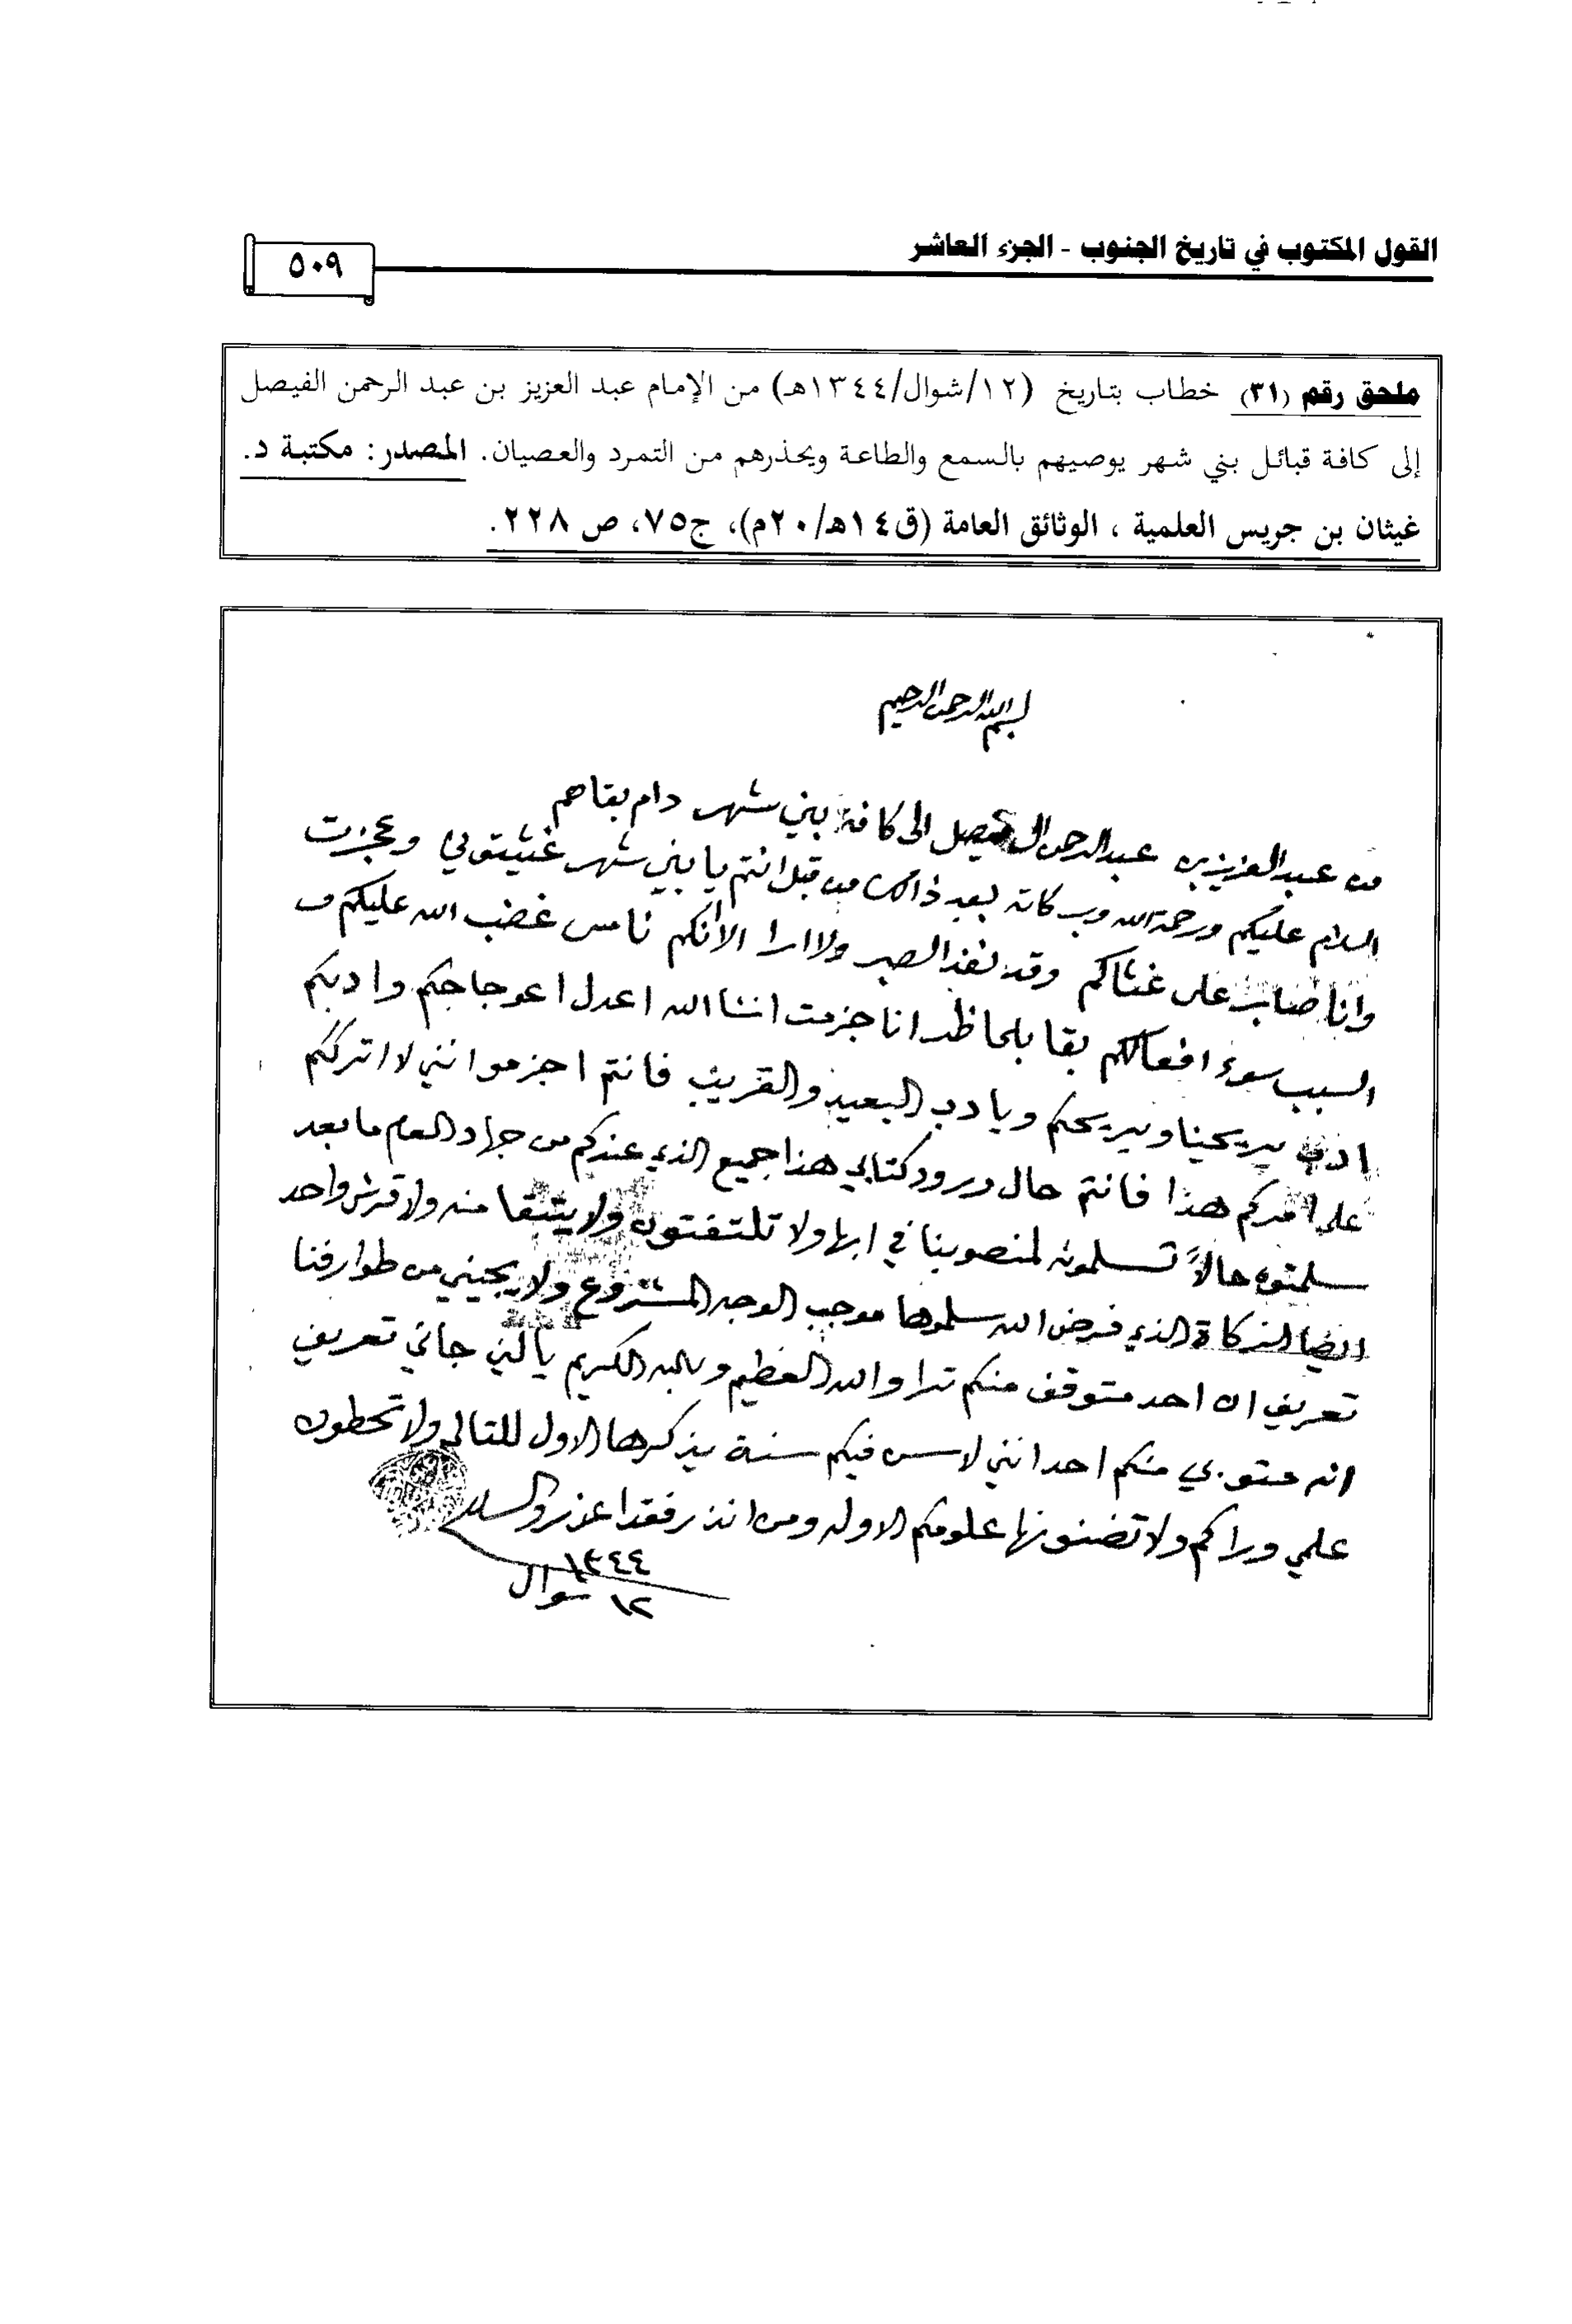 القول المكتوب في تاريخ الجنوب - الجزء العاشر
٥٠٩
ملحق رقم (٣١) خطاب بتاريخ (١٢/شوال/١٣٤٤هـ) من الإمام عبد العزيز بن عبد الرحمن الفيصل
إلى كافة قبائل بني شهر يوصيهم بالسمع والطاعة ويحذرهم من التمرد والعصيان. المصدر: مكتبة د.
غيثان بن جريس العلمية ، الوثائق العامة (ق١٤هـ/٢٠م)، ج٧٥، ص ٢٢٨.
بسم الله الرحمن الرحيم
من عبد العزيز بن عبد الرحمن ال فيصل الى كافة بني شهر دام بقاهم
السلام عليكم ورحمة الله وبركاته بعد ذالك من قبل انتم يا بني شهر غثيتوني وعجزت
وانا صابر على غثاكم وقد نفذ الصبر ولا ارا الا انكم ناس غضب الله عليكم و
السبب سوء افعالكم بقا بلحاظر انا جزمت انشا الله اعدل اعوجاجكم وادبكم
ادب يريحنا ويريحكم ويادب البعيد والقريب فانتم اجزموا انني لا اترككم
على امركم هذا فانتم حال ورود كتابي هذا جميع الذي عندكم من جهاد العام ما بعد
سلمتوه حالاً تسلمونه لمنصوبنا في ابها ولا تلتفتون ولا يتبقا منه ولا قرش واحد
ايضا الزكاة الذي فرض الله سلموها موجب الوجه المشروع ولا يجيني من طوارفنا
تعريف ان احد متوقف منكم ترا والله العظيم وبالله الكريم يا لين جاني تعريف
انه منكم احد انني لاسن فيكم سنة يذكرها الاول للتالي ولا تحطون
علمي وراكم ولا تضنونها علومكم الاوله ومن انذر فقد اعذر والسلام
١٣٤٤
١٢ شوال